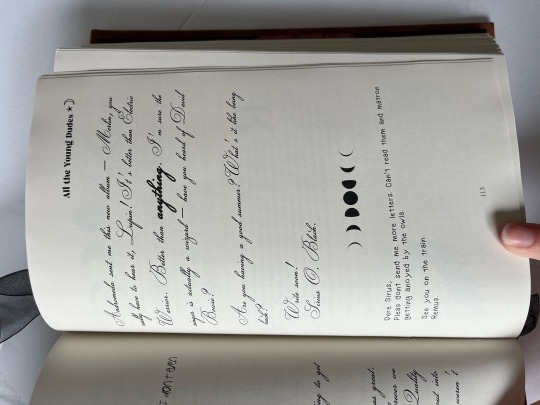 All the Young Dudes ★☽
Andromeda sent me this new album — Merlin, you
have to hear it, Lupin! It's better than Electric
Warrior. Better than anything. I'm sure the
singer is actually a wizard — have you heard of David
Bowie?
Are you having a good summer? What's it like being
back?
Write soon!
Sirius O. Black.
Dere Sirius,
Pleas dont send me more letters. Can't read them and matron
getting anoyed by the owls.
See you on the train.
Remus.
113
I don't even
ing to get
was great.
Quality
and into
weren't